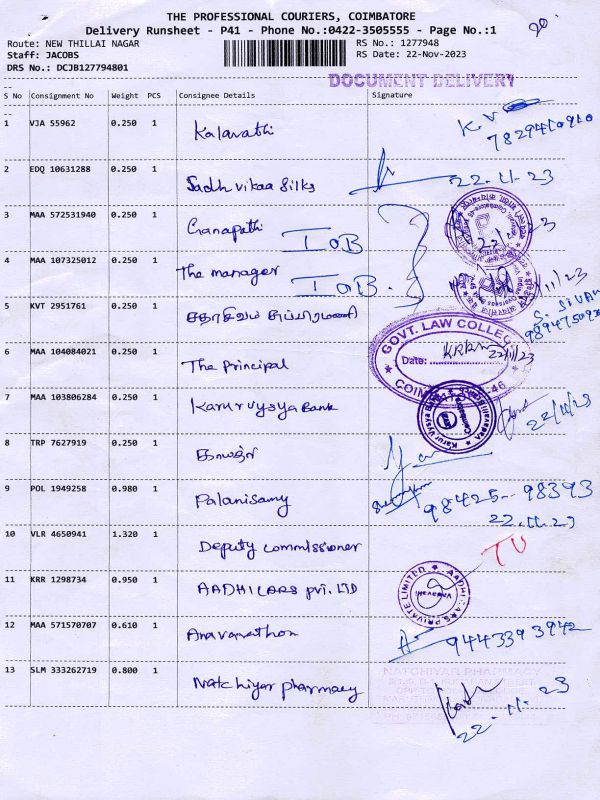 THE PROFESSIONAL COURIERS, COIMBATORE
Delivery Runsheet - P41 - Phone No.:0422-3505555 - Page No.:1
Route: NEW THILLAI NAGAR
RS No.: 1277948
Staff: JACOBS
RS Date: 22-Nov-2023
DRS No.: DCJB127794801
DOCUMENT DELIVERY
S No Consignment No Weight PCS Consignee Details Signature
1 VJA 55962 0.250 1 Kalavathi
7829410910
2 EDQ 10631288 0.250 1 Sadhvikaa Silks 22.11.23
3 MAA 572531940 0.250 1 Ganapathi IOB
4 MAA 107325012 0.250 1 The manager IOB.
5 KVT 2951761 0.250 1
S. SIVA
6 MAA 104084021 0.250 1 The Principal
GOVT. LAW COLLEGE
Date: 22/11/23
7 MAA 103806284 0.250 1 Karur vysya Bank 22/11/23
8 TRP 7627919 0.250 1
9 POL 1949258 0.980 1 Palanisamy 98425-98393
22.11.23
10 VLR 4650941 1.320 1 Deputy commissioner
11 KRR 1298734 0.950 1 AADHI CARS pvt. LTD
AADHI CARS PRIVATE LIMITED
12 MAA 571570707 0.610 1 9443393942
13 SLM 333262719 0.800 1 Natchiyar pharmacy
NATCHIYAR PHARMACY
22-11-23